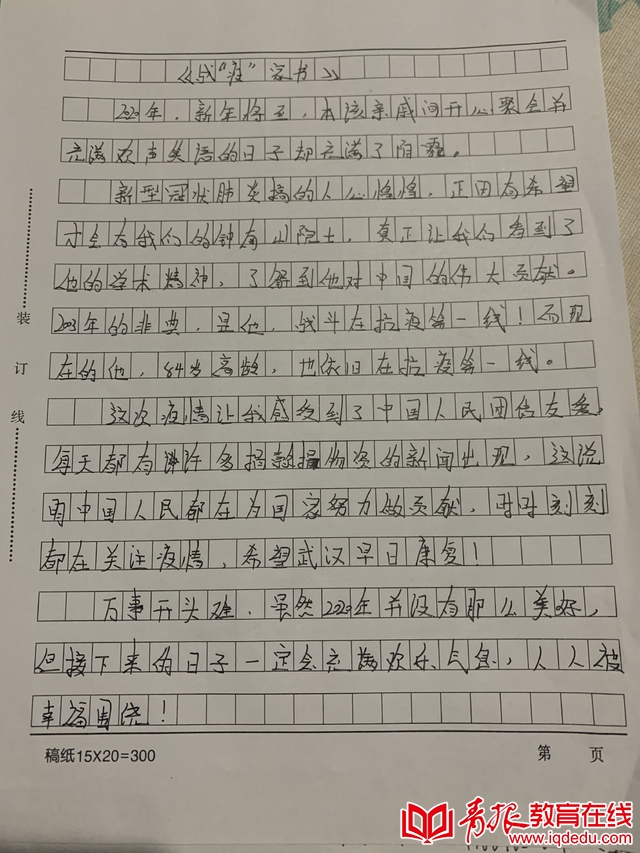 《战“疫”家书》
2020年，新年将至，本该亲戚间开心聚会并
充满欢声笑语的日子却充满了阴霾。
新型冠状肺炎搞的人心惶惶，正因有希望
才会有我们的钟南山院士，真正让我们看到了
他的学术精神，了解到他对中国的伟大贡献。
2003年的非典，是他，战斗在抗疫第一线！而现
在的他，84岁高龄，也依旧在抗疫第一线。
这次疫情让我感受到了中国人民团结友爱，
每天都有许多捐款捐物资的新闻出现，这说
明中国人民都在为国家努力做贡献，时时刻刻
都在关注疫情，希望武汉早日康复！
万事开头难，虽然2020年并没有那么美好，
但接下来的日子一定会充满欢乐气息，人人被
幸福围绕！
装
订
线
稿纸15X20=300
第 页
青报教育在线
www.iqdedu.com